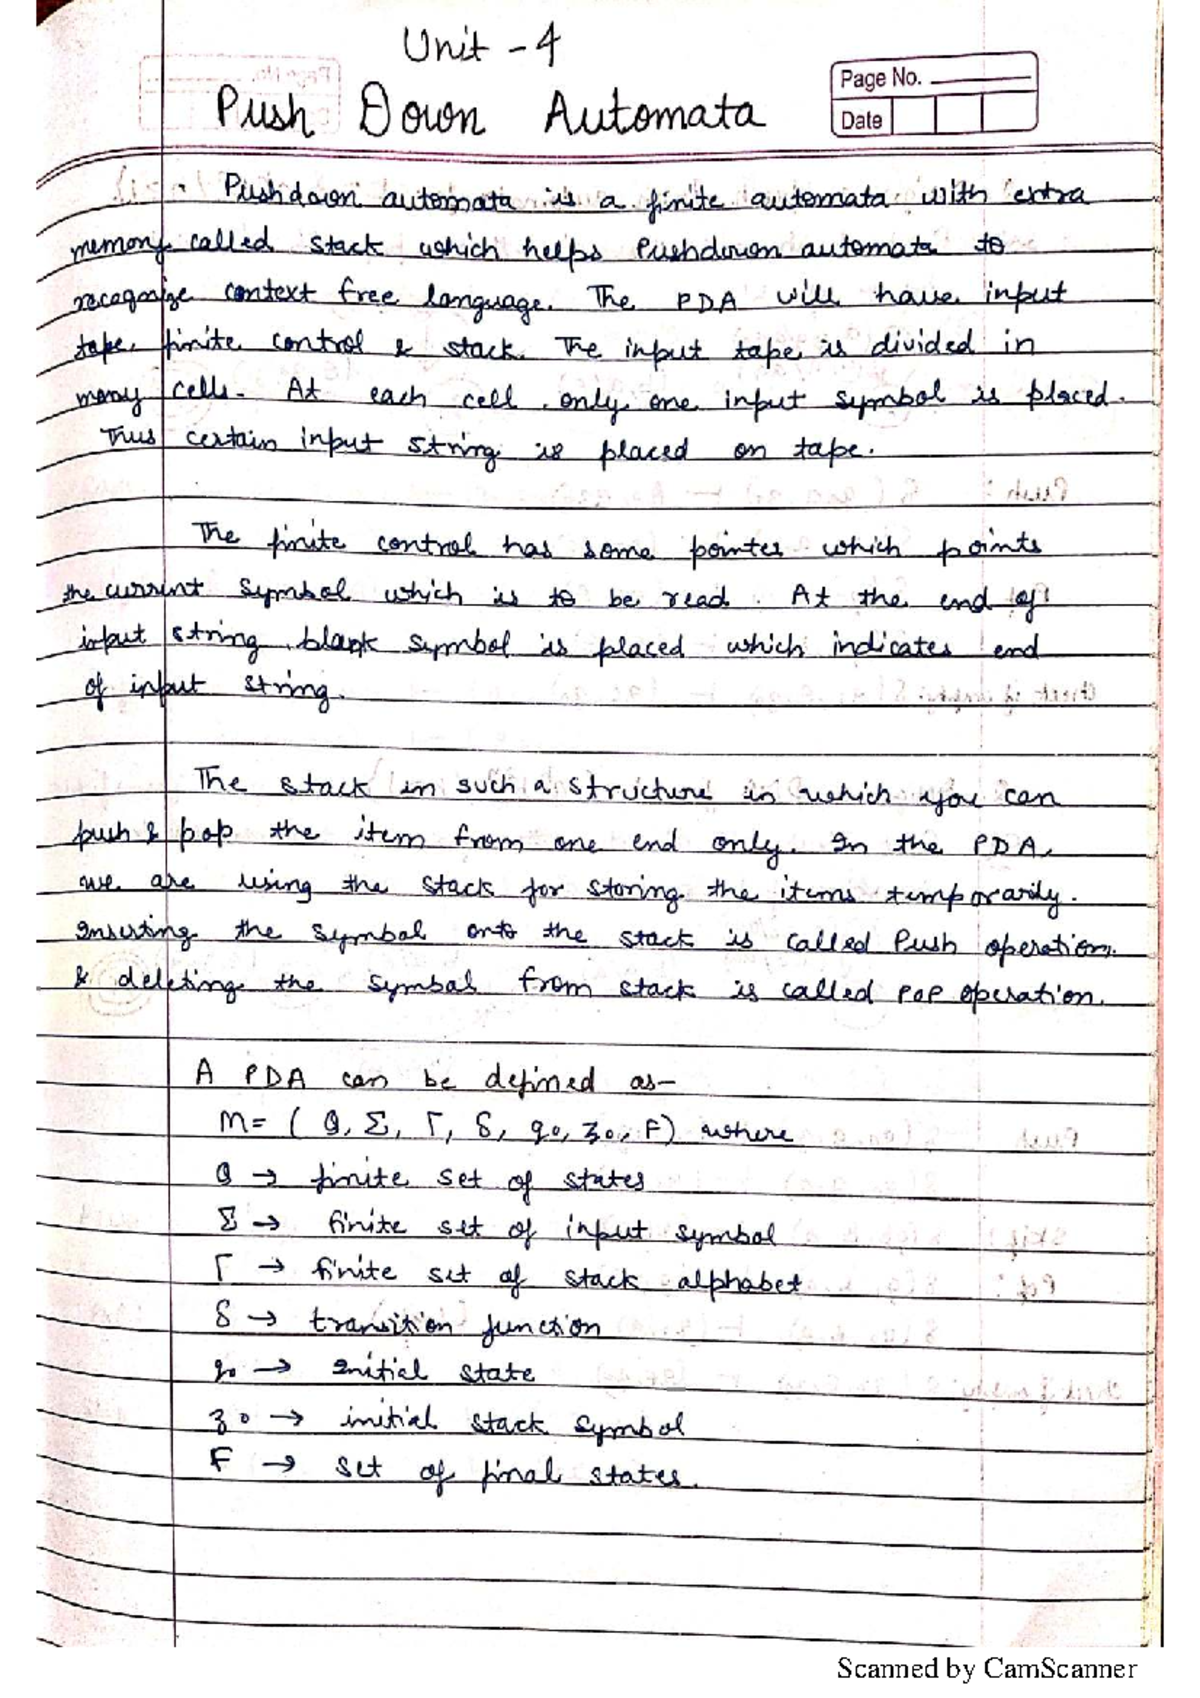 Unit - 4
Push Down Automata
Page No.
Date
Pushdown automata is a finite automata with extra
memory called stack which helps Pushdown automata to
recognize context free language. The PDA will have input
tape, finite control & stack. The input tape is divided in
many cells. At each cell only one input symbol is placed.
Thus certain input string is placed on tape.
The finite control has some pointer which points
the current symbol which is to be read. At the end of
input string blank symbol is placed which indicates end
of input string.
The stack in such a structure in which you can
push & pop the item from one end only. In the PDA,
we are using the stack for storing the items temporarily.
Inserting the symbol onto the stack is called Push operation.
& deleting the symbol from stack is called POP operation.
A PDA can be defined as—
M= ( Q, Σ, Γ, δ, q0, z0, F) where
Q → finite set of states
Σ → finite set of input symbol
Γ → finite set of stack alphabet
δ → transition function
q0 → Initial state
z0 → initial stack symbol
F → set of final states.
Scanned by CamScanner